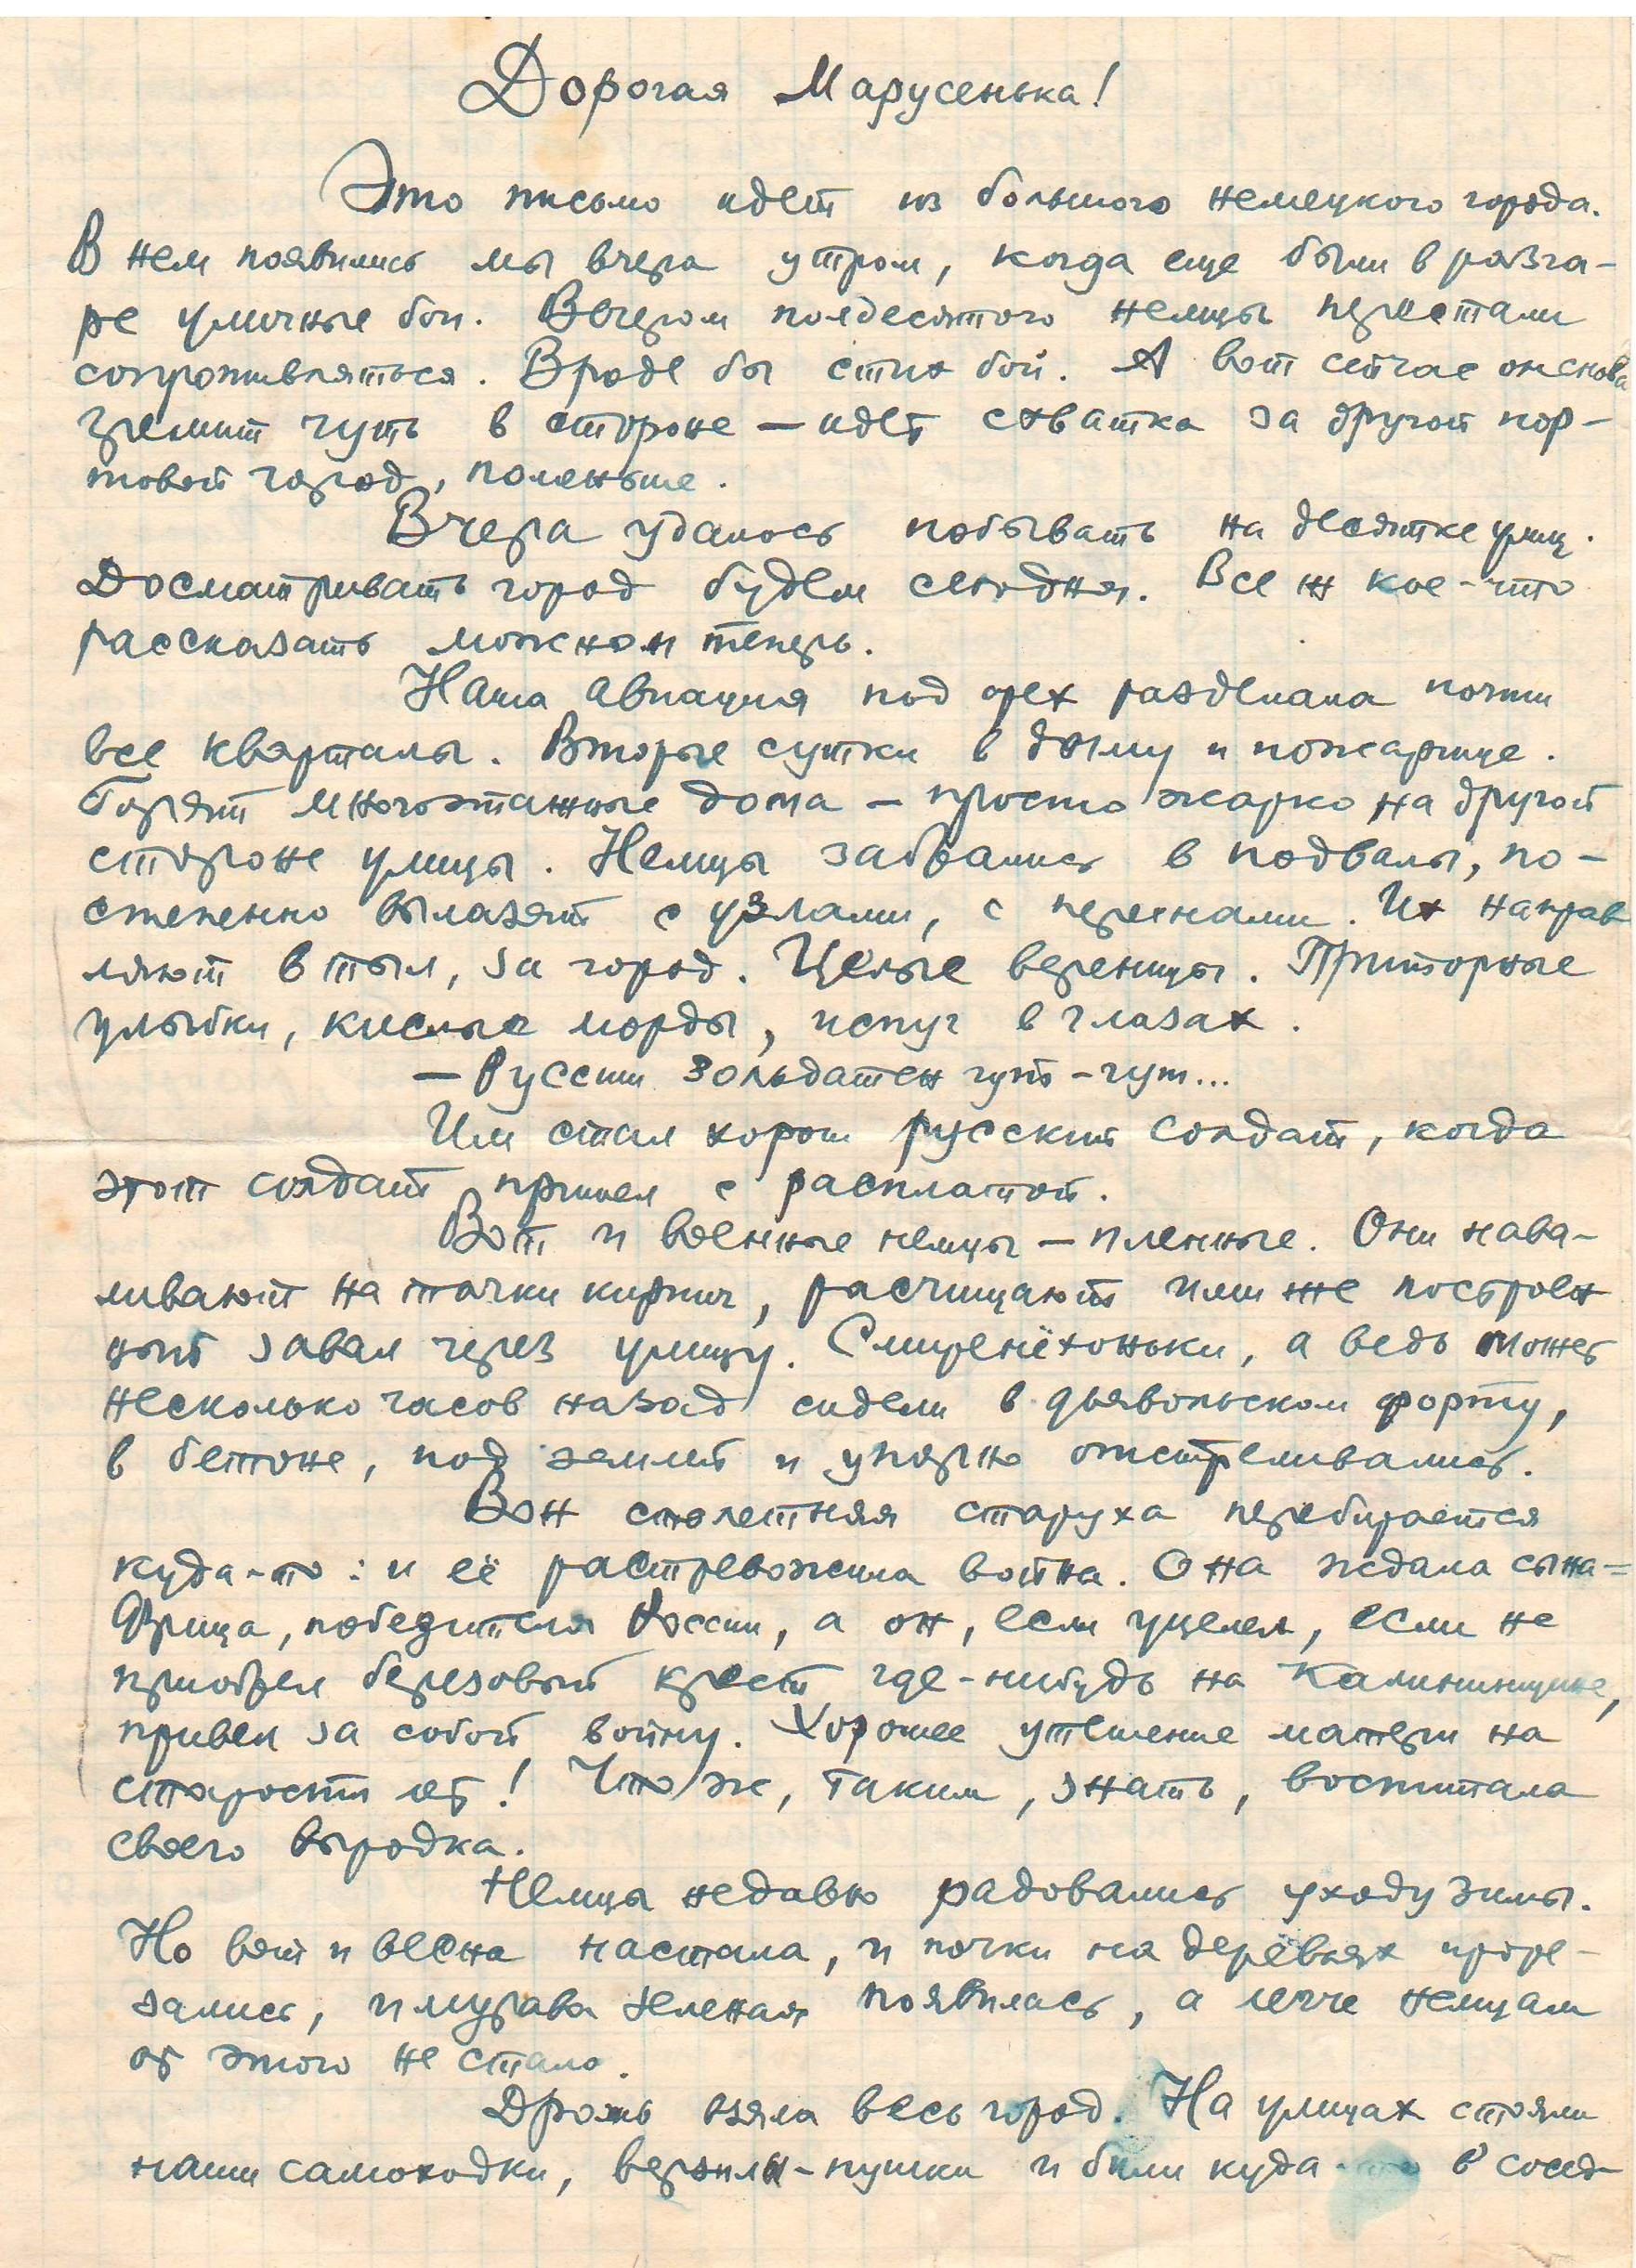 Дорогая Марусенька!
Это письмо идет из большого немецкого города.
В нем появились мы вчера утром, когда еще были в разга-
ре уличные бои. Вечером полдесятого немцы перестали
сопротивляться. Вроде бы стих бой. А вот сейчас он снова
гремит чуть в стороне — идет схватка за другой пор-
товой город, поменьше.
Вчера удалось побывать на десятке улиц.
Досматривать город будем сегодня. Все ж кое-что
рассказать можно и теперь.
Наша авиация под орех разделала почти
все кварталы. Вторые сутки в дыму и пожарище.
Горят многоэтажные дома — просто жарко на другой
стороне улицы. Немцы забрались в подвалы, по-
степенно вылазят с узлами, с перинами. Их направ
ляют в тыл, за город. Целые вереницы. Приторные
улыбки, кислые морды, испуг в глазах.
— Руссиш зольдатен гут-гут...
Им стал хорош русский солдат, когда
этот солдат пришел с расплатой.
Вот и военные немцы — пленные. Они нава-
ливают на тачки кирпич, расчищают ими же построен
ный завал через улицу. Смиренёхоньки, а ведь может
несколько часов назад сидели в дьявольском форту,
в бетоне, под землей и упорно отстреливались.
Вон столетняя старуха перебирается
куда-то: и её растревожила война. Она ждала сына=
Фрица, победителя России, а он, если уцелел, если не
приобрел березовый крест где-нибудь на Калининщине,
привел за собой войну. Хорошее утешение матери на
старости лет! Что ж, таким, знать, воспитала
своего выродка.
Немцы недавно радовались уходу зимы.
Но вот и весна настала, и почки на деревьях проре-
зались, и мурава зеленая появилась, а легче немцам
от этого не стало.
Дрожь взяла весь город. На улицах стояли
наши самоходки, верзилы-пушки и били куда-то в сосед-